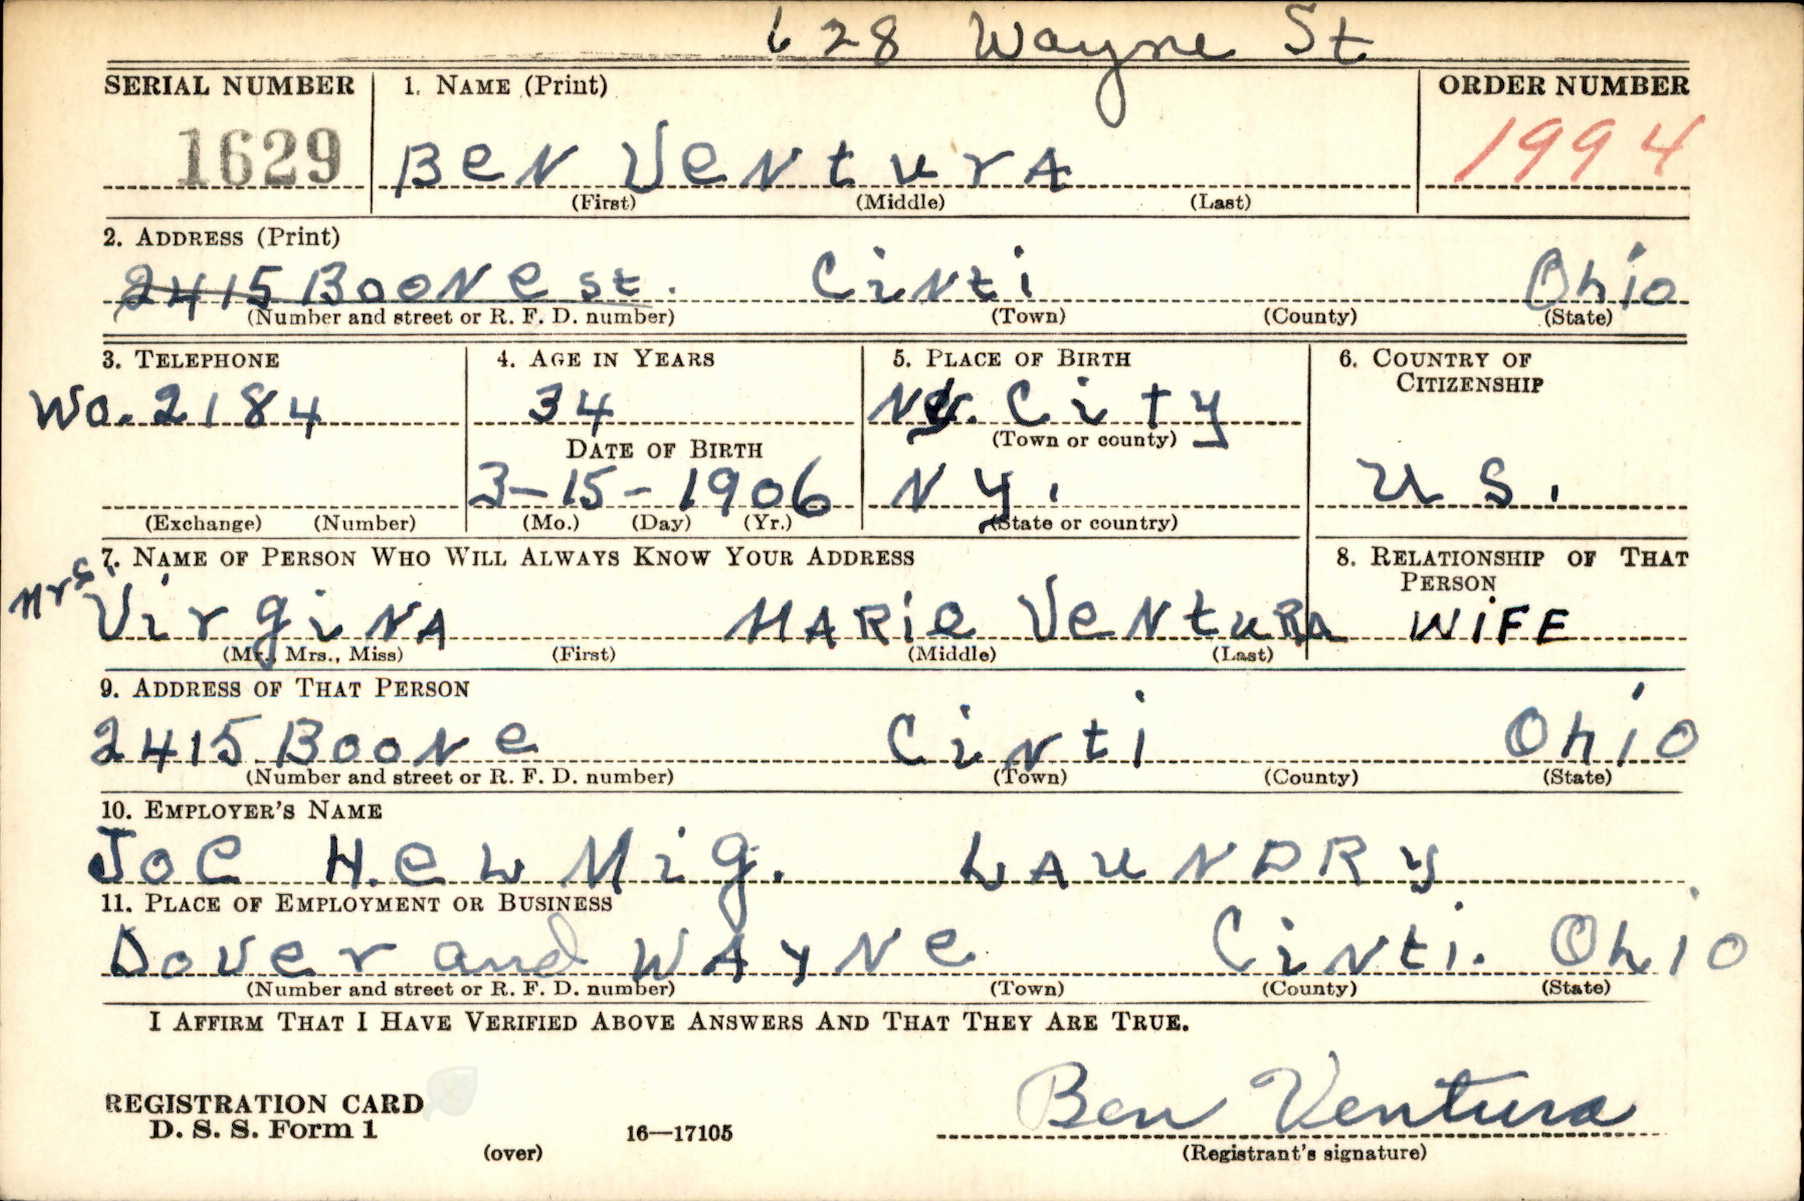 628 Wayne St
SERIAL NUMBER 1. NAME (Print) ORDER NUMBER
1629 Ben Ventura 1994
(First) (Middle) (Last)
2. ADDRESS (Print)
2415 Boone st. Cinti Ohio
(Number and street or R. F. D. number) (Town) (County) (State)
3. TELEPHONE 4. AGE IN YEARS 5. PLACE OF BIRTH 6. COUNTRY OF
CITIZENSHIP
Wo. 2184 34 Ny. City
DATE OF BIRTH (Town or county)
3-15-1906 N y. U S.
(Exchange) (Number) (Mo.) (Day) (Yr.) (State or country)
7. NAME OF PERSON WHO WILL ALWAYS KNOW YOUR ADDRESS 8. RELATIONSHIP OF THAT
PERSON
Mrs. Virgina Marie Ventura WiFE
(Mr., Mrs., Miss) (First) (Middle) (Last)
9. ADDRESS OF THAT PERSON
2415 Boone Cinti Ohio
(Number and street or R. F. D. number) (Town) (County) (State)
10. EMPLOYER'S NAME
Joe Helmig. LAUNDRY
11. PLACE OF EMPLOYMENT OR BUSINESS
Dover and WAyNe Cinti. Ohio
(Number and street or R. F. D. number) (Town) (County) (State)
I AFFIRM THAT I HAVE VERIFIED ABOVE ANSWERS AND THAT THEY ARE TRUE.
Ben Ventura
REGISTRATION CARD
D. S. S. Form 1 16—17105
(over) (Registrant's signature)